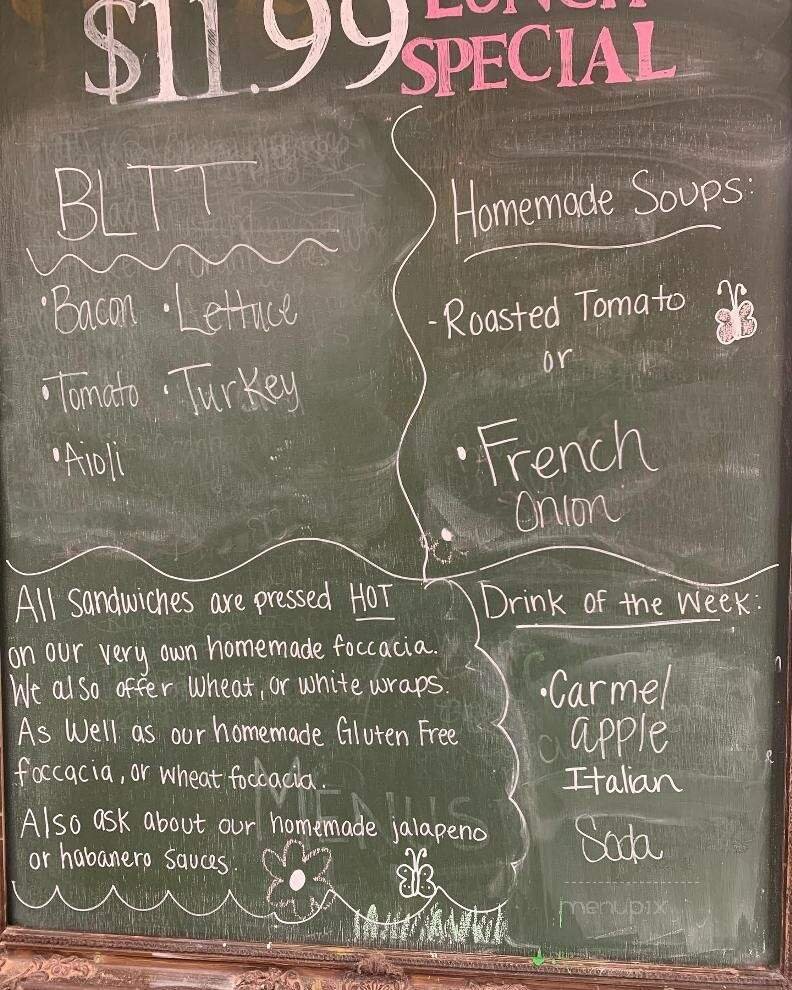 $11.99 LUNCH
SPECIAL
BLTT
•Bacon •Lettuce
•Tomato •Turkey
•Aioli
Homemade Soups:
-Roasted Tomato
or
•French
Onion
All Sandwiches are pressed HOT
on our very own homemade foccacia.
We also offer wheat, or white wraps.
As Well as our homemade Gluten Free
foccacia, or wheat foccacia.
Also ask about our homemade jalapeno
or habanero sauces.
Drink of the Week:
•Carmel
apple
Italian
Soda
MENUS
menupix